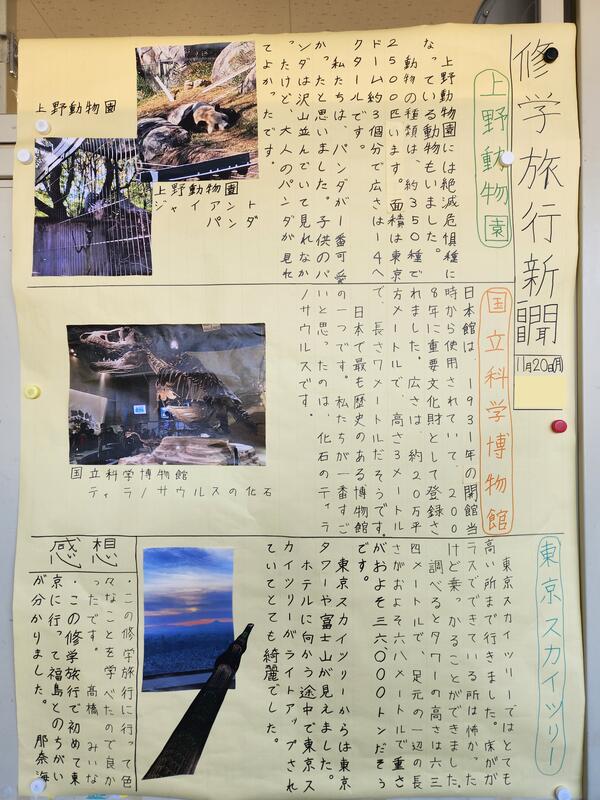 修学旅行新聞
11月20日(月)
上野動物園
上野動物園には絶滅危惧種に
なっている動物もいました。
動物の種類は、約350種で
2500匹います。面積は東京
ドーム約3個分で広さは14ヘ
クタールです。
私たちは、パンダが一番可愛
かったと思いました。子供のパ
ンダは沢山並んでいて見れなか
ったけど、大人のパンダが見れ
てよかったです。
上野動物園
ジャイアント
パンダ
上野動物園
国立科学博物館
日本館は、1931年の開館当
時から使用されていて、200
8年に重要文化財として登録さ
れました。広さは、約20万平
方メートルで、高さ3メートル
で、長さ7メートルだそうです。
日本で最も歴史のある博物館
の一つです。私たちが一番すご
いと思ったのは、化石のティラ
ノサウルスです。
国立科学博物館
ティラノサウルスの化石
東京スカイツリー
東京スカイツリーではとても
高い所まで行きました。床がガ
ラスでできている所は怖かった
けど乗っかることができました。
調べるとタワーの高さは六三
四メートルで、足元の一辺の長
さがおよそ六八メートルで重さ
がおよそ三六、000トンだそう
です。
東京スカイツリーからは東京
タワーや富士山が見えました。
ホテルに向かう途中で東京ス
カイツリーがライトアップされ
ていてとても綺麗でした。
感想
・この修学旅行に行って色
々なことを学べたので良か
ったです。 高橋 みいな
・この修学旅行で初めて東
京に行って福島とのちがい
が分かりました。 那奈海